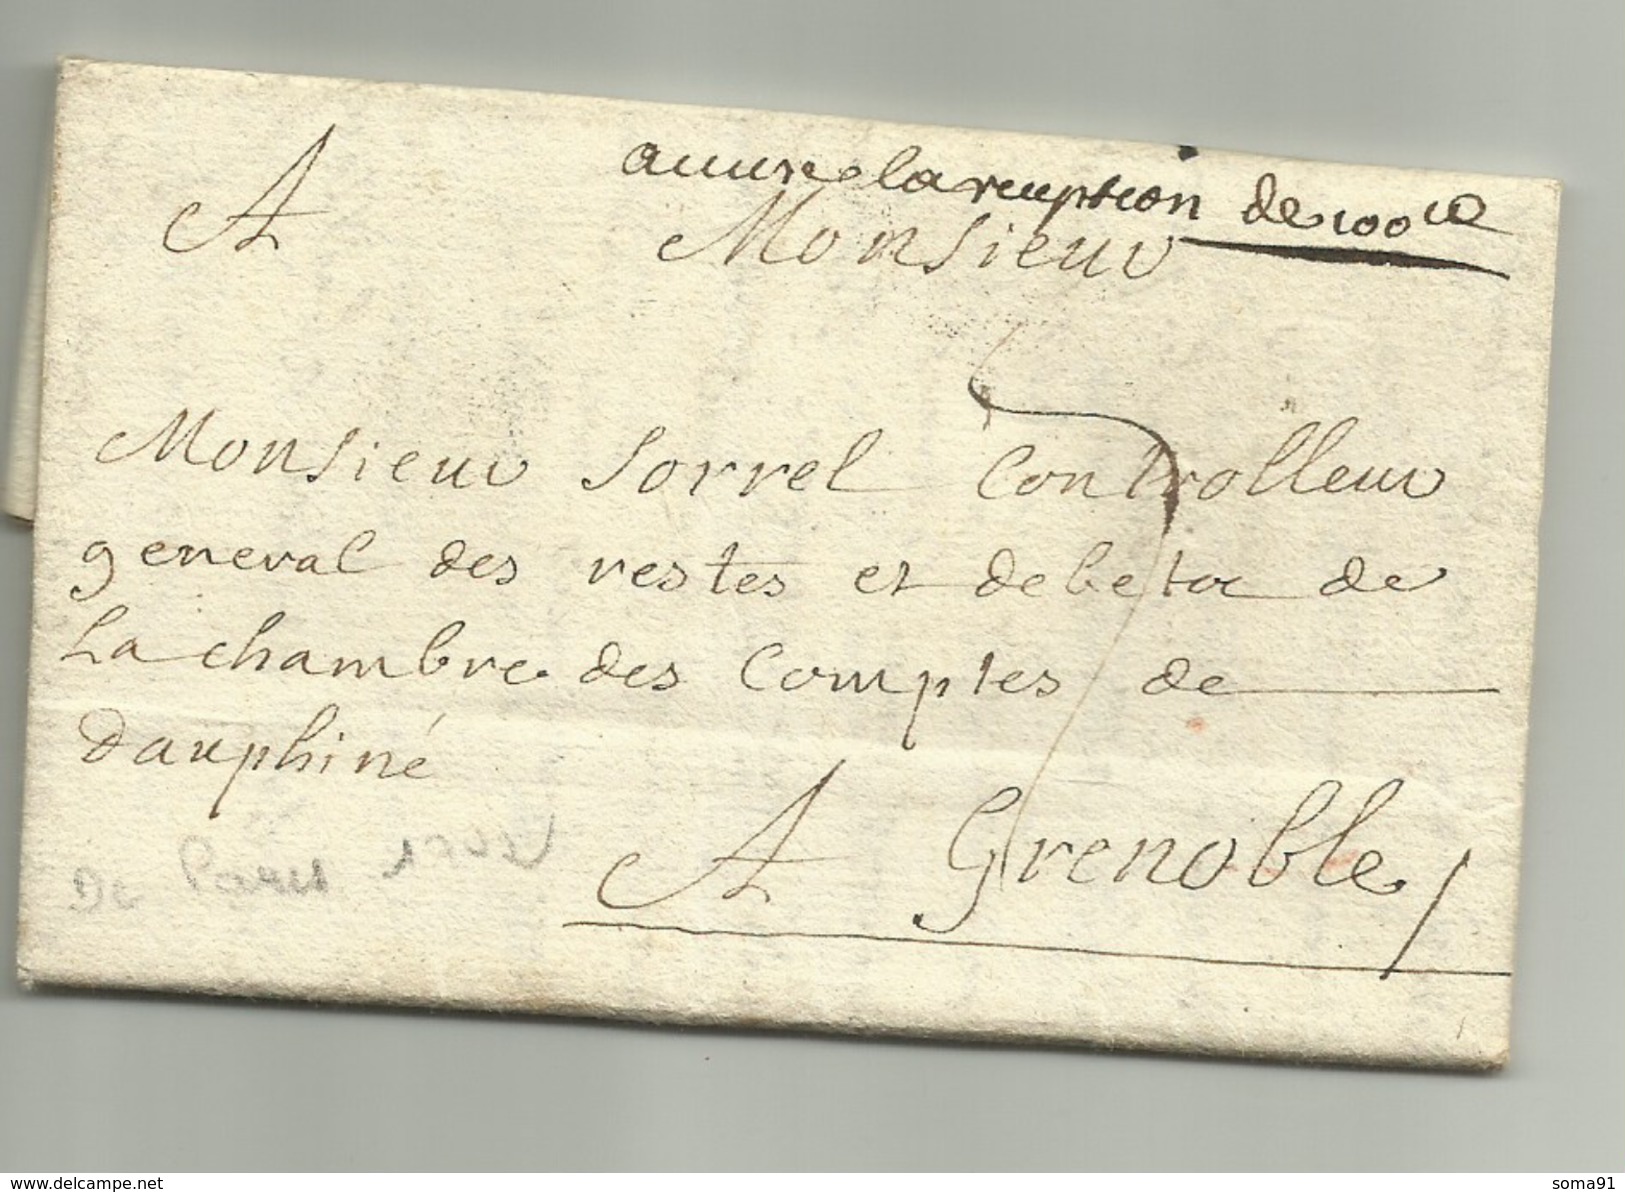 accuse la reception de 100 lt
A Monsieur
Monsieur Sorrel Controlleur
general des restes et debets de
La chambre des Comptes de
dauphiné
A Grenoble
De Paris
www.delcampe.net
soma91